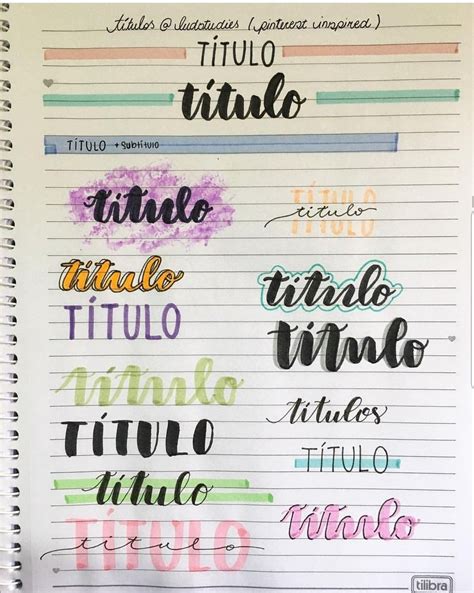 títulos @ludstudies (pinterest inspired)
TÍTULO
título
TÍTULO + SUBTÍTULO
título
TÍTULO
título
título
título
TÍTULO
título
título
títulos
TÍTULO
TÍTULO
título
título
TÍTULO
título
tilibra